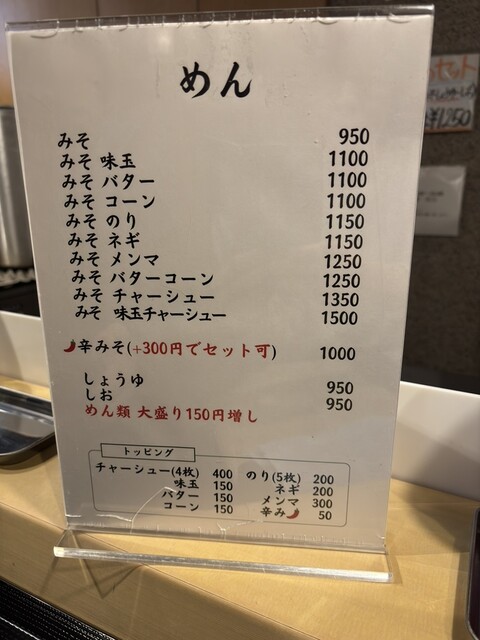 めん
みそ 950
みそ 味玉 1100
みそ バター 1100
みそ コーン 1100
みそ のり 1150
みそ ネギ 1150
みそ メンマ 1250
みそ バターコーン 1250
みそ チャーシュー 1350
みそ 味玉チャーシュー 1500
辛みそ(+300円でセット可) 1000
しょうゆ 950
しお 950
めん類 大盛り150円増し
トッピング
チャーシュー(4枚) 400 のり(5枚) 200
味玉 150 ネギ 200
バター 150 メンマ 300
コーン 150 辛み 50
セット
¥1250